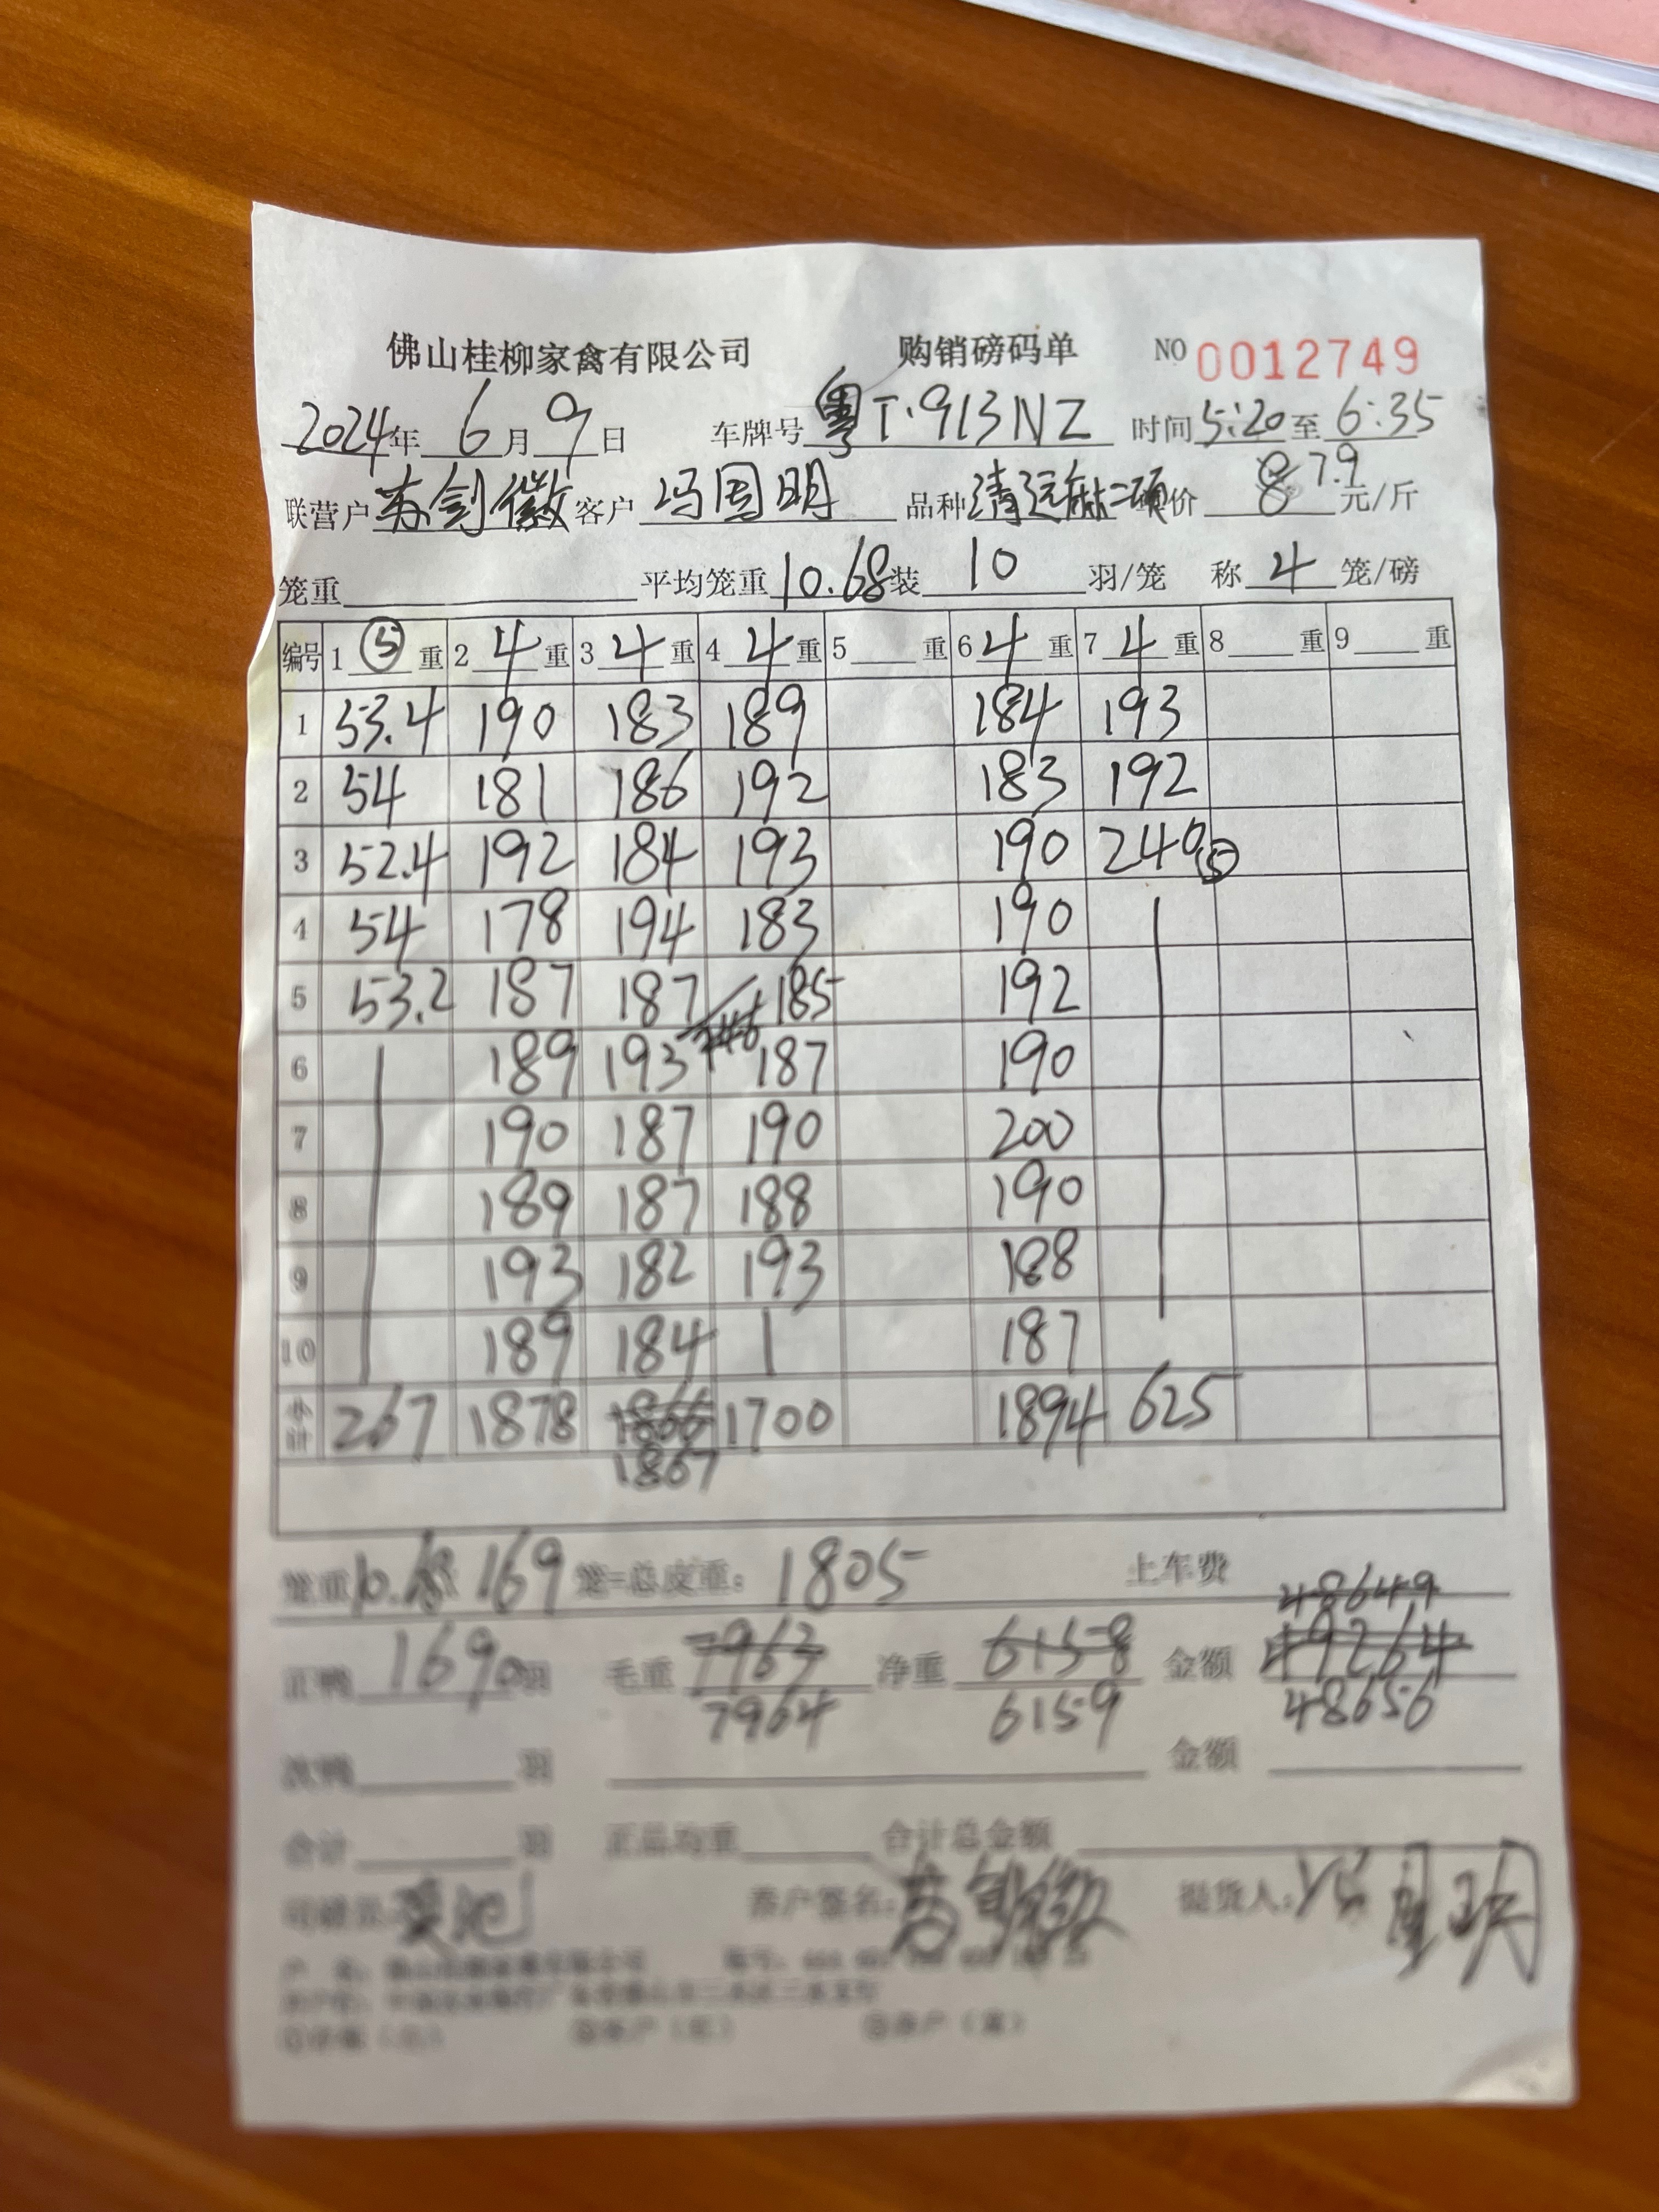 佛山桂柳家禽有限公司 购销磅码单 NO 0012749
2024年 6月 9日 车牌号 粤T·913NZ 时间 5:20 至 6:35
联营户 苏剑徽 客户 冯国明 品种 清远麻二项 单价 8 7.9 元/斤
笼重 平均笼重 10.68 装 10 羽/笼 称 4 笼/磅
编号 1 ⑤ 重 2 4 重 3 4 重 4 4 重 5 重 6 4 重 7 4 重 8 重 9 重
1 53.4 190 183 189 184 193
2 54 181 186 192 183 192
3 52.4 192 184 193 190 240⑤
4 54 178 194 183 190
5 53.2 187 187 185 192
6 189 193 246 187 190
7 190 187 190 200
8 189 187 188 190
9 193 182 193 188
10 189 184 187
小计 267 1878 1866 1700 1894 625
1867
笼重 10.68 169 笼=总皮重: 1805 上车费
48649
正鸭 1690羽 毛重 7963 净重 6158 金额 49264
7964 6159 48656
次鸭 羽 金额
合计 羽 正品均重 合计总金额
司磅员: 养户签名: 苏剑徽 提货人: 冯国明